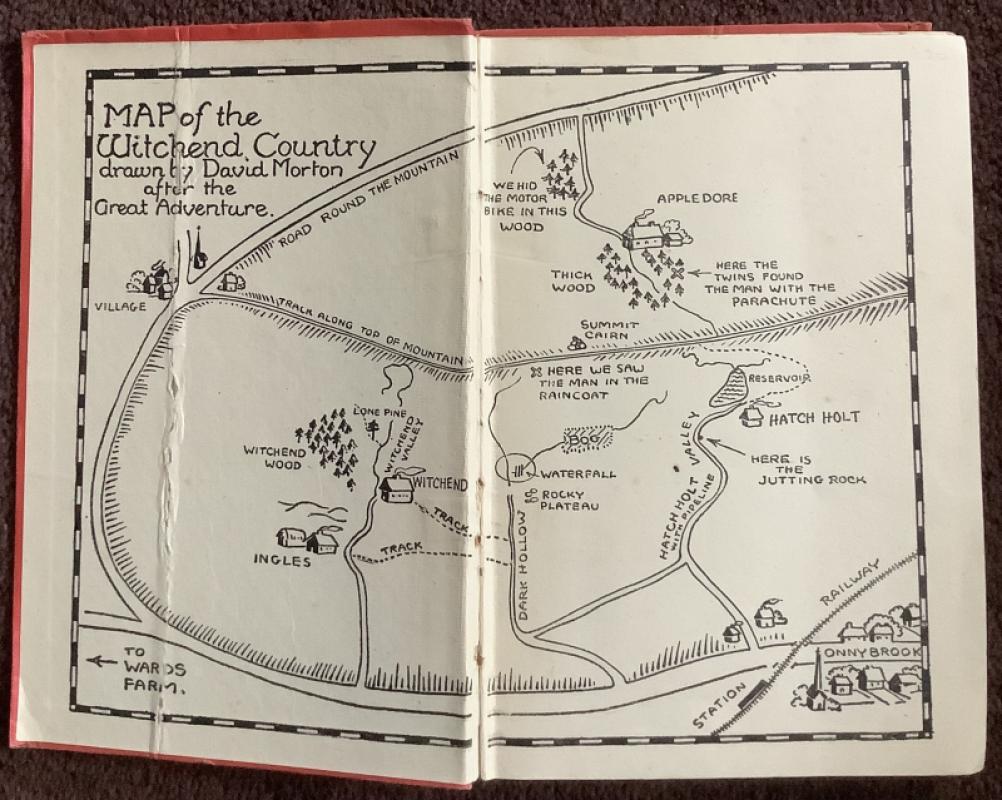 MAP of the
Witchend Country
drawn by David Morton
after the
Great Adventure.
ROAD ROUND THE MOUNTAIN
WE HID
THE MOTOR
BIKE IN THIS
WOOD
APPLEDORE
THICK
WOOD
HERE THE
TWINS FOUND
THE MAN WITH THE
PARACHUTE
VILLAGE
TRACK ALONG TOP OF MOUNTAIN
SUMMIT
CAIRN
HERE WE SAW
THE MAN IN THE
RAINCOAT
RESERVOIR
HATCH HOLT
LONE PINE
WITCHEND
VALLEY
WITCHEND
WOOD
WITCHEND
BOG
WATERFALL
ROCKY
PLATEAU
HATCH HOLT VALLEY
WITH PIPELINE
HERE IS
THE
JUTTING ROCK
TRACK
TRACK
INGLES
DARK HOLLOW
RAILWAY
ONNYBROOK
STATION
TO
WARDS
FARM.